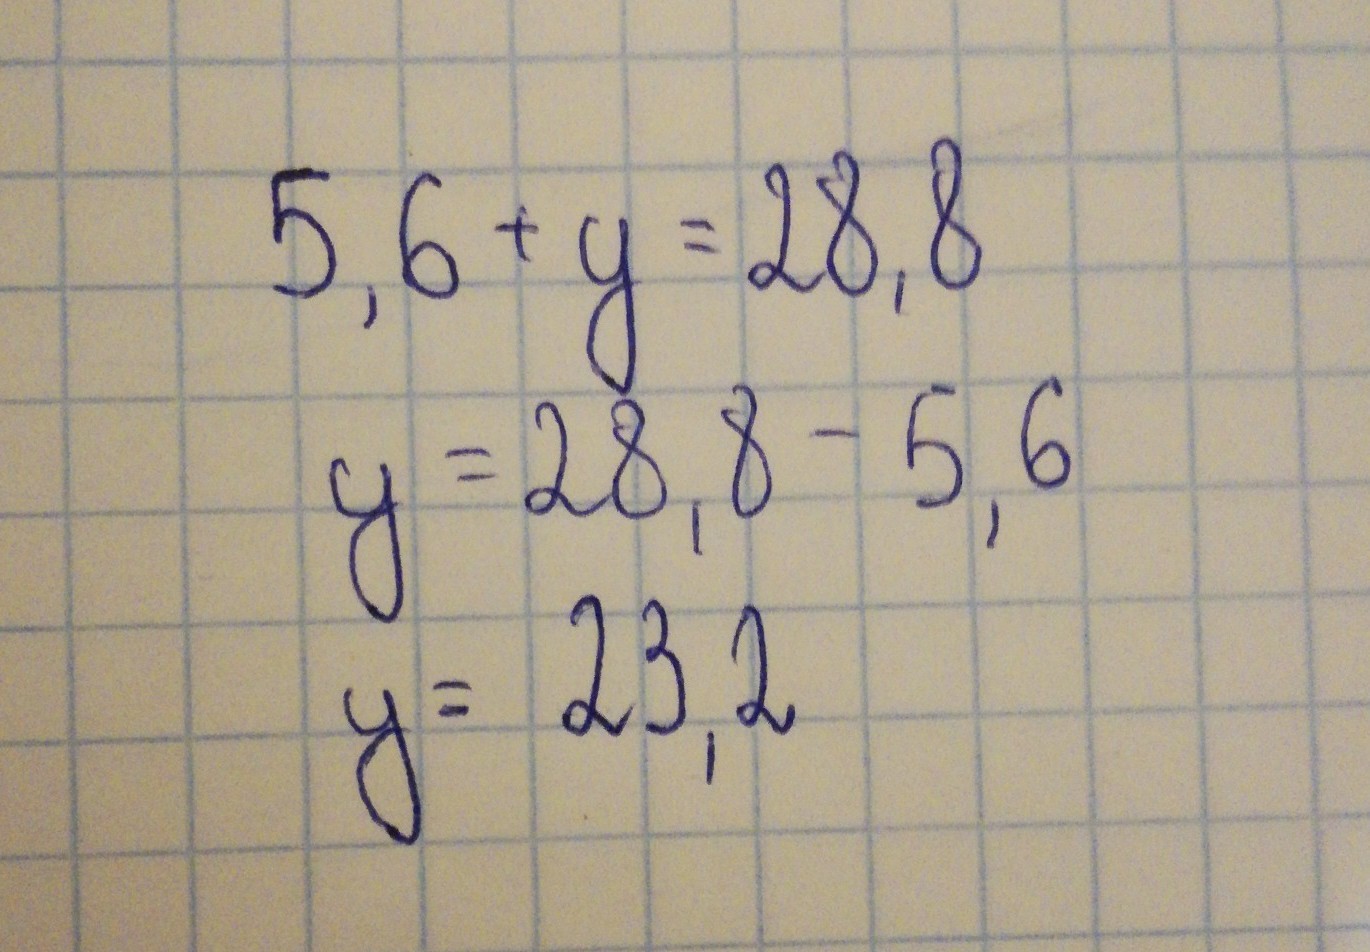 5,6 + y = 28,8
y = 28,8 - 5,6
y = 23,2